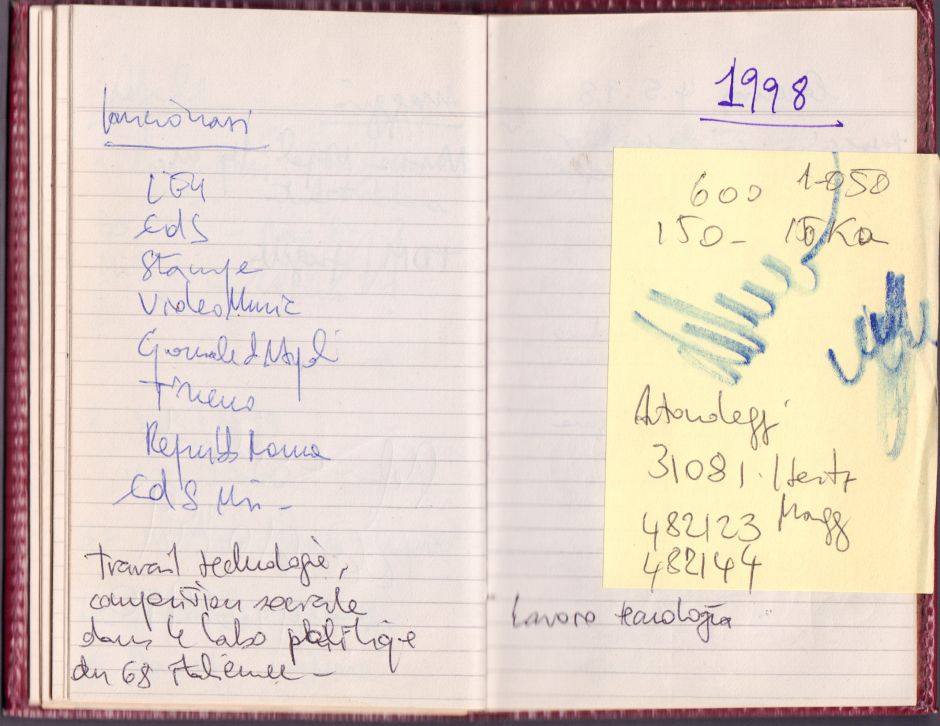 CdS
Stampe
VideoMusic
Giornale d Napoli
Tirreno
Repubb Roma
CdS Mi -
travail technologie,
composition sociale
dans le labo politique
du 68 italienne -
1998
600 1050
150-
Autonoleggi
31081. Hertz
482123 Magg
482144
Lavoro tecnologia